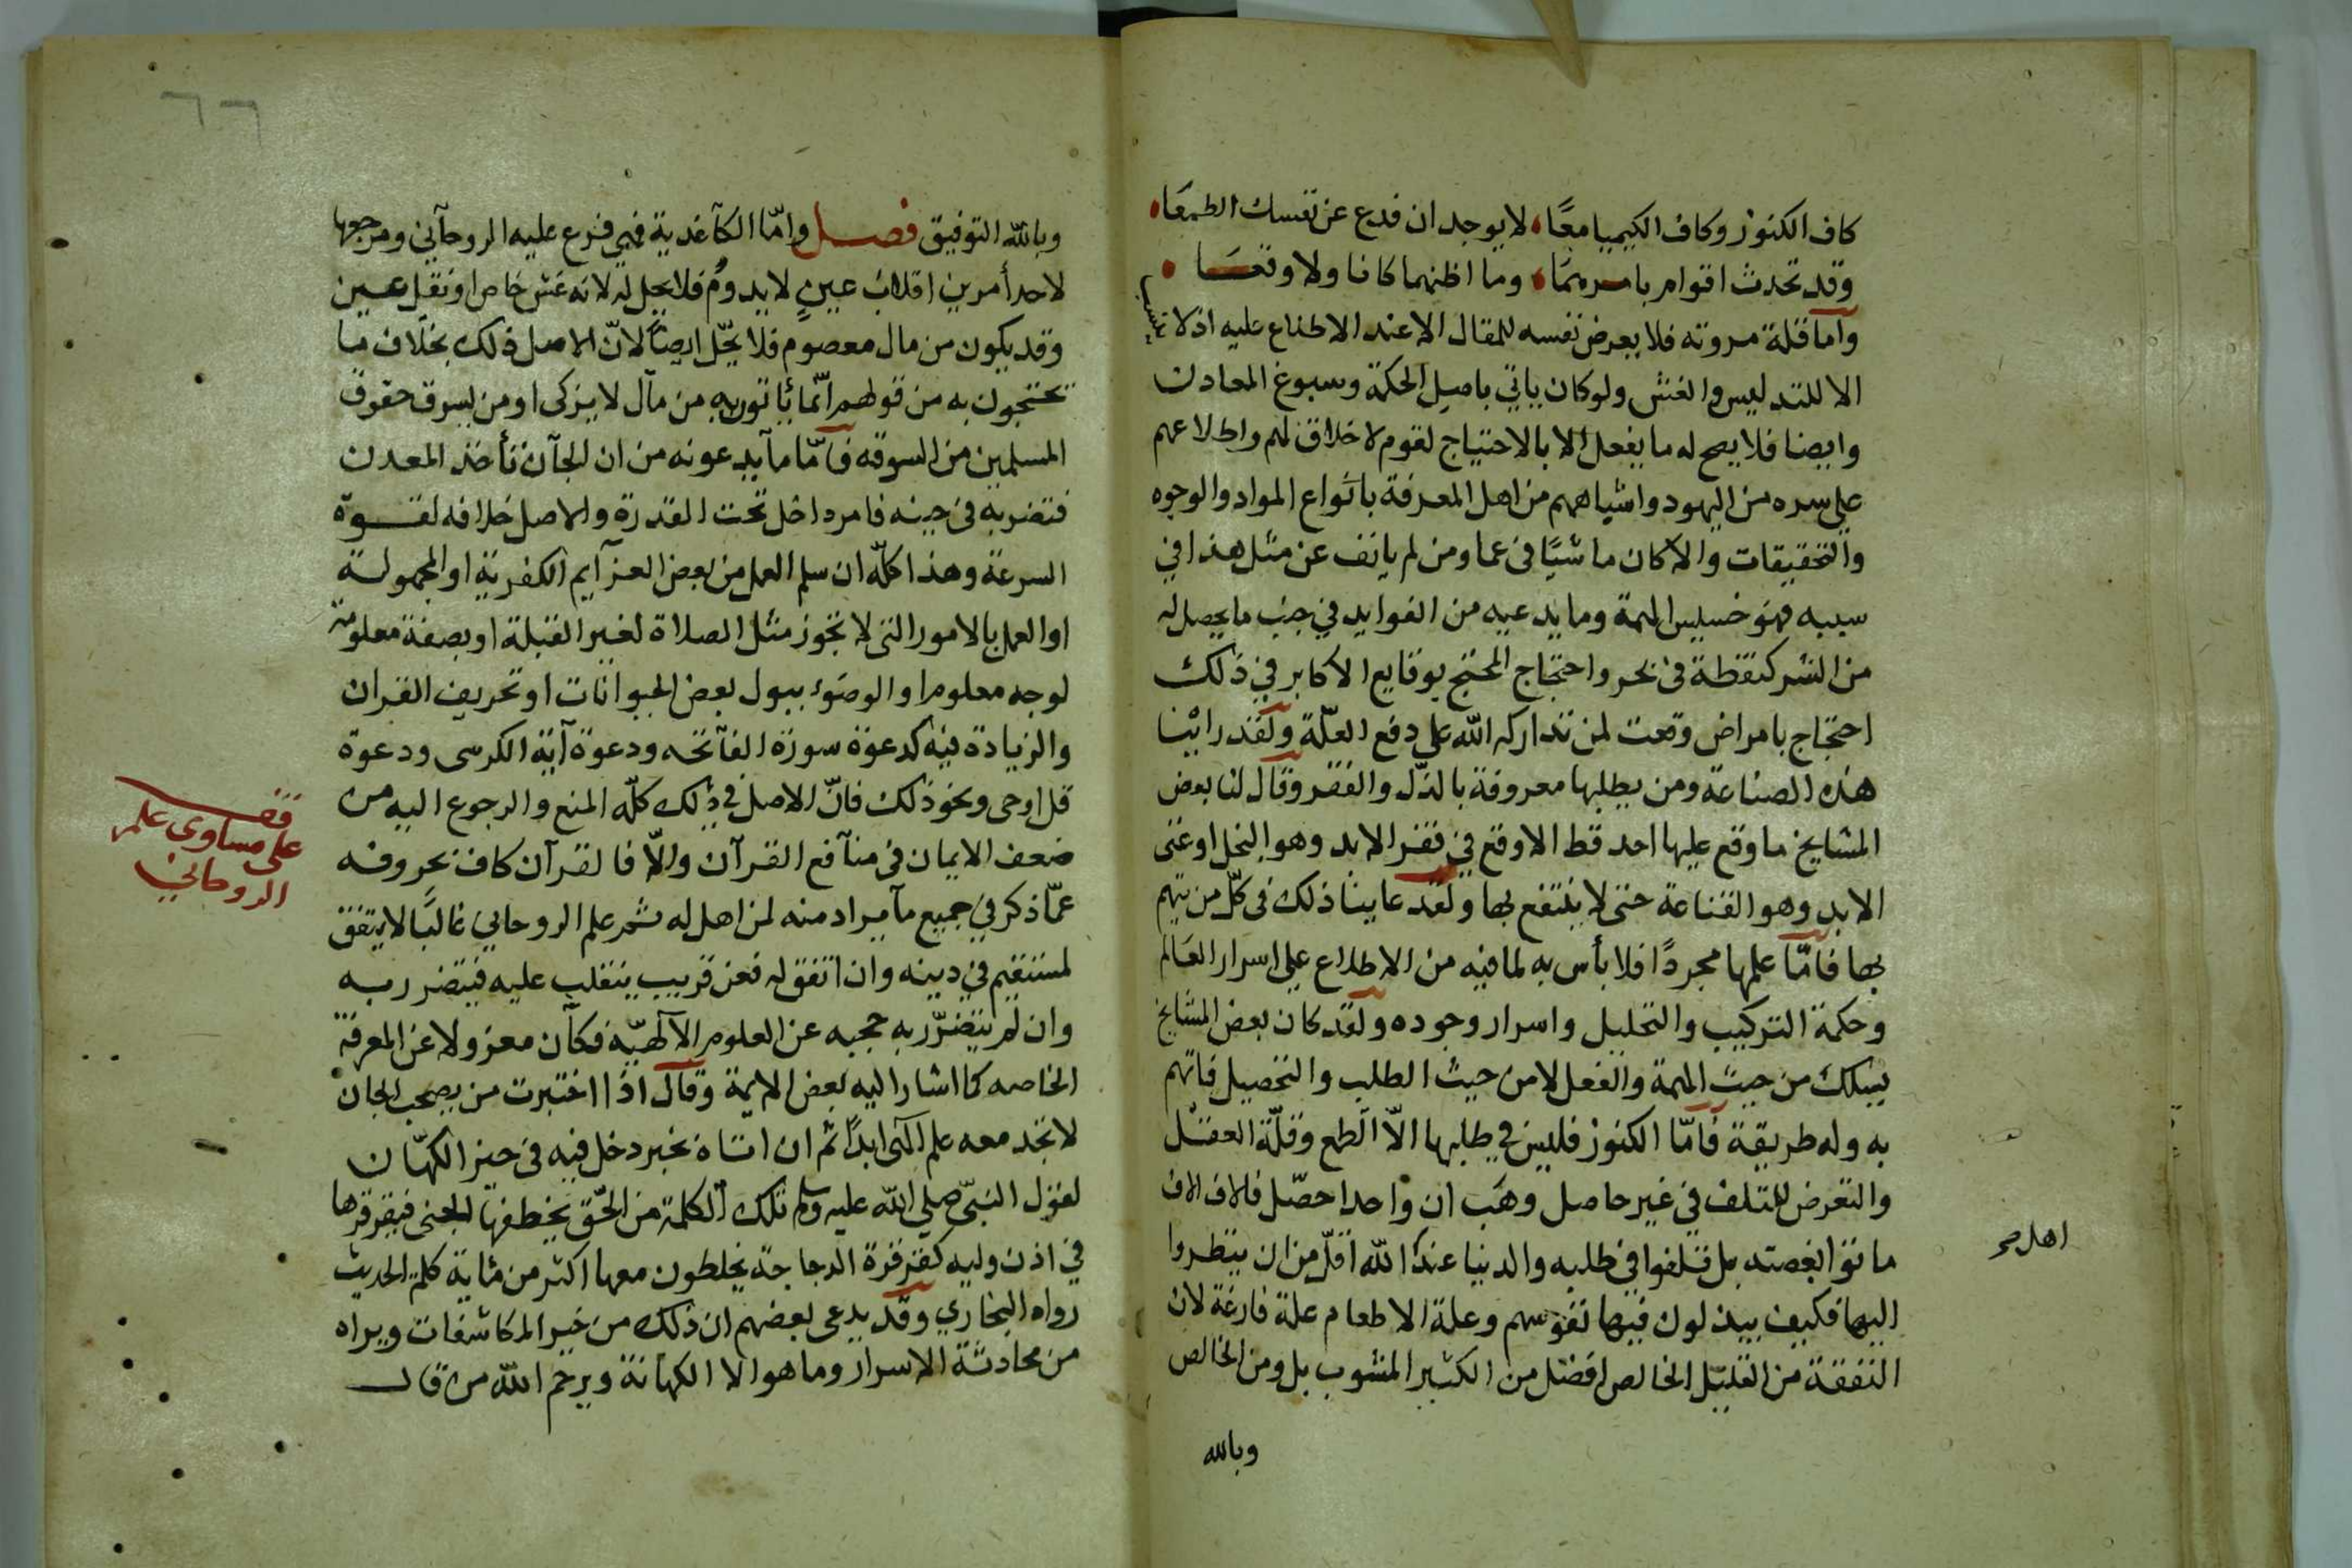 كاف الكنوز وكاف الكيميا معًا، لا يوجد ان فدع عن نفسك الطمعَا،
وقد تحدث اقوام بامرهما، وما اظنهما كانا ولا وقعَـا
وأما قلة مروته فلا يعرض نفسه للمقال الا عند الاطلاع عليه اذ لا
الا للتدليس والغش ولو كان ياتي باصيل الحكمة وسبوغ المعادن
وايضا فلا يصح له ما يفعل الا بالاحتياج لقوم لا خلاق لهم واطلاعهم
علي سره من اليهود واشباههم من اهل المعرفة بانواع المواد والوجوه
والتحقيقات والا كان ماشيًا في عما ومن لم يانف عن مثل هذا في
سببه فهو خسيس الهمة وما يدعيه من الفوايد في جنب ما يحصل له
من الشر كنقطة في بحر واحتجاج المحتج بوقايع الاكابر في ذلك
احتجاج بامراض وقعت لمن تداركه الله علي دفع العلّة ولقد راينا
هذه الصناعة ومن يطلبها معروفة بالذل والفقر وقال لنا بعض
المشايخ ما وقع عليها احد قط الا وقع في فقر الابد وهو البخل او غنى
الابد وهو القناعة حتى لا ينتفع بها ولقد عاينا ذلك في كلّ من يتهم
بها فامّا علمها مجردًا فلا بأس به لما فيه من الاطلاع علي اسرار العَالم
وحكمة التركيب والتحليل واسرار وجوده ولقد كان بعض المشايخ
يسلك من حيث الهمة والفعل لا من حيث الطلب والتحصيل فانهم
به وله طريقة فأمّا الكنوز فليس في طلبها الاّ الطمع وقلّة العقـل
والتعرض للتلف في غير حاصل وهَب ان واحدا حصّل فالاف الاف
ماتوا بغصته بل تلفوا في طلبه والدنيا عند الله اقلّ من ان ينظروا
اهل صح
اليها فكيف يبذلون فيها نفوسهم وعلة الاطعام علة فارغة لان
النفقة من القليل الخالص افضل من الكثير المشوب بل ومن الخالص
وبالله
٦٦
وبالله التوفيق فصـل وامّا الكآغدية فهي فرع عليه الروحآني ومرجعها
لاحد أمرين اقلاب عينٍ لا يدوم فلا يحل له لانه غش خاص او نقل عـين
وقد يكون من مال معصوم فلا يحّل ايضًا لانّ الاصل ذلك بخلاف ما
تحتجون به من قولهم انّما يأتون به من مآل لا يزكى او من يسرق حقوق
المسلمين من السوقه فأمّا مآ يدعونه من ان الجآن تأخذ المعدن
فتضربه في حينه فامر داخل تحت القدرة والاصل خلافه لقـوة
السرعة وهذا كلّه ان سلم العمل من بعض العزآيم الكفرية او المجهولة
او العمل بالامور التي لا تجوز مثل الصلاة لغير القبلة او بصفة معلومة
لوجه معلوم او الوضوء ببول بعض الحيوانات او تحريف القران
والزيادة فيه كدعوة سورة الفآتحه ودعوة آية الكرسى ودعوة
قل اوحى ونحو ذلك فانّ الاصل في ذلك كلّه المنع والرجوع اليه من
ضعف الايمان في منآفع القرآن والاّ فالقرآن كاف بحروفه
قف
على مساوى علم
الروحاني
عمّا ذكر في جميع مآ يراد منه لمن اهل له ثم علم الروحاني غالبًا لا يتفق
لمستقيم في دينه وان اتفق له فعن قريب ينقلب عليه فيتضرر به
وان لم يتضرّر به حجبه عن العلوم الآلهيّه فكآن معزولا عن المعرفة
الخاصه كما اشار اليه بعض الايمة وقال اذا اختبرت من يصحب الجان
لا تجد معه علم الٓهى ابدًا ثم ان اتاه بخبر دخل فيه في حيز الكهّان
لقول النبّي صلي الله عليه وسلم تلك الكلمة من الحّق يخطفها الجنى فيقرقرها
في اذن وليه كقرقرة الدجاجة يخلطون معها اكثر من مائة كلمة الحديث
رواه البخاري وقد يدعى بعضهم ان ذلك من خير المكاشفات ويراه
من محادثة الاسرار وما هو الا الكهانة ويرحم الله من قال